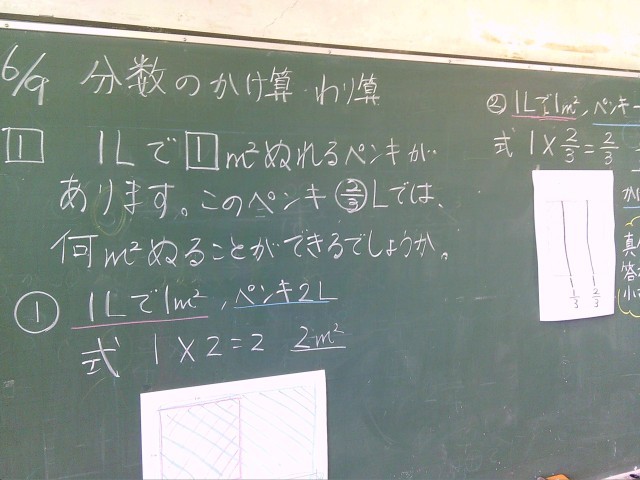 6/9 分数のかけ算 わり算
1 1Lで1m²ぬれるペンキが
あります。このペンキ2/3Lでは、
何m²ぬることができるでしょうか。
① 1Lで1m²,ペンキ2L
式 1×2=2 2m²
② 1Lで1m²,ペンキ
式 1×2/3=2/3
1/3 2/3
真
答
小